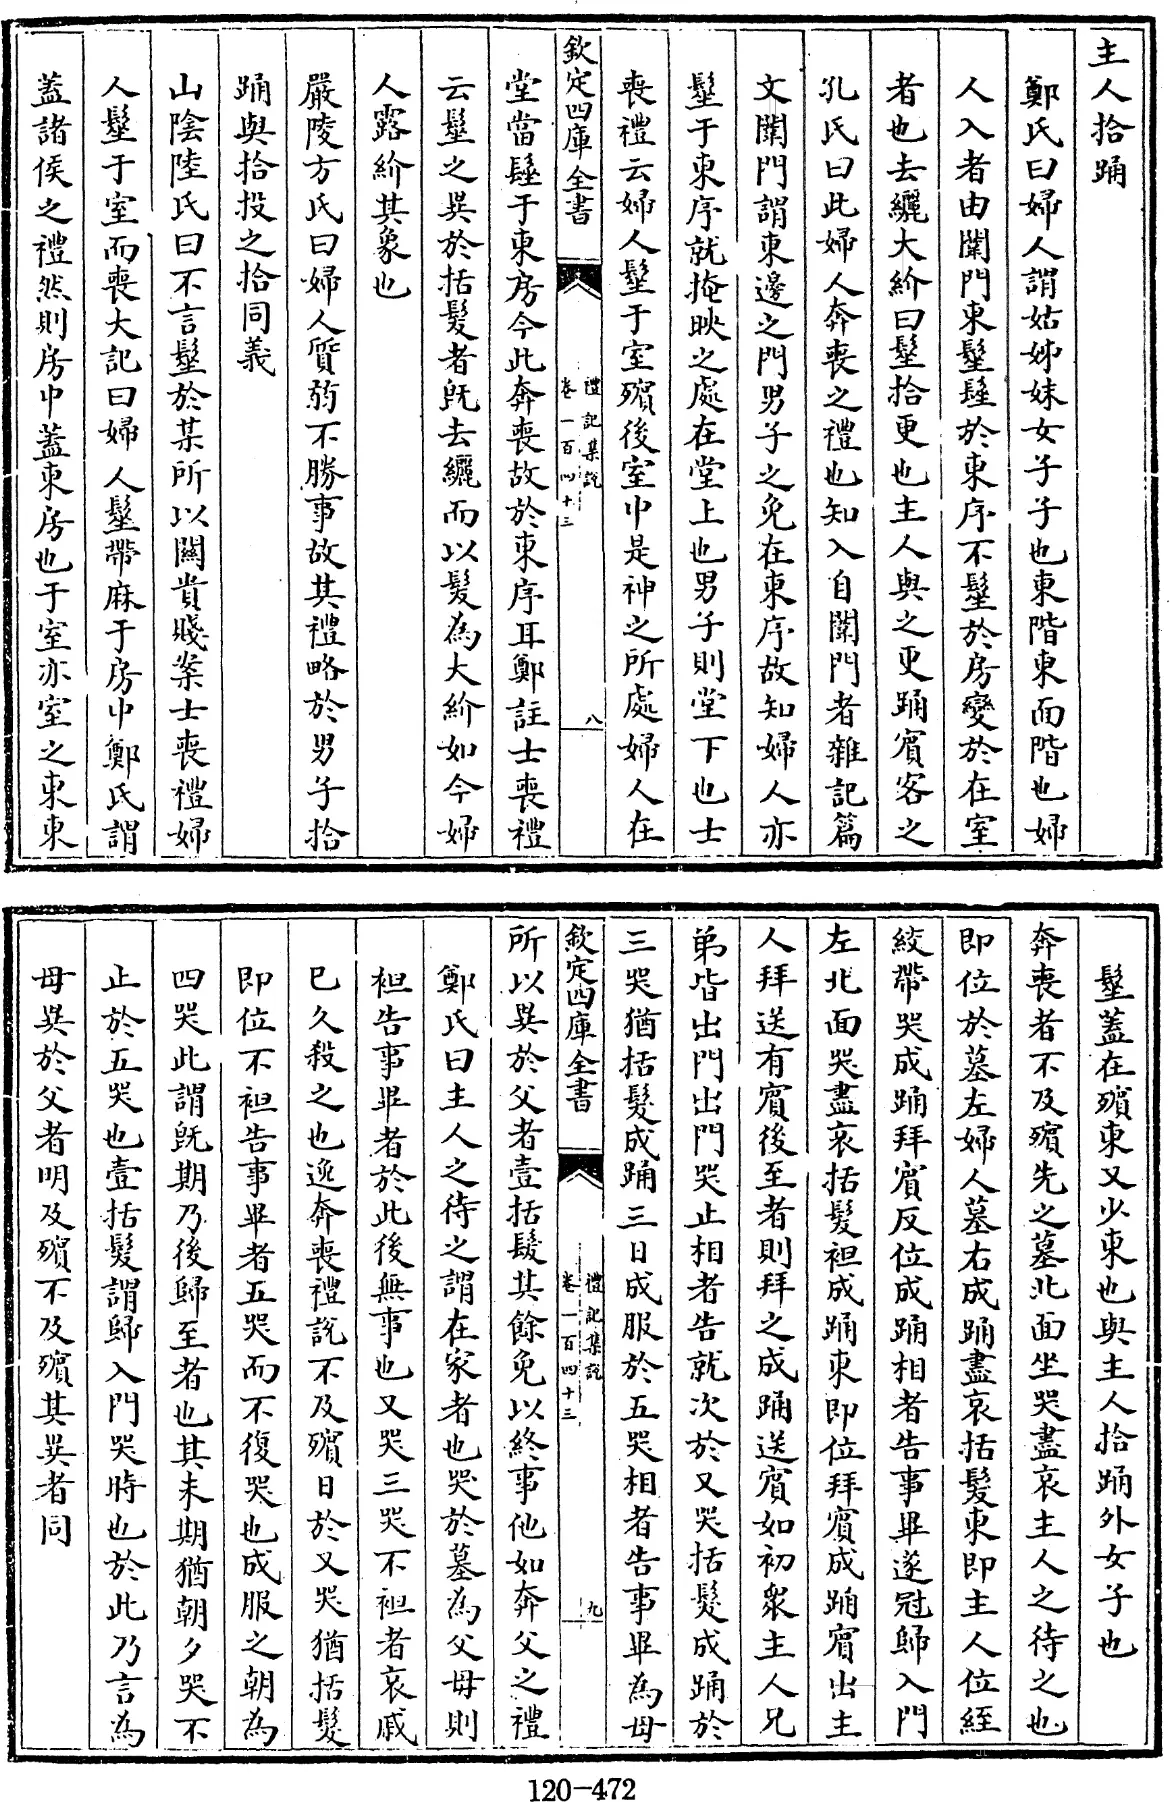 主人拾踊
鄭氏曰婦人謂姑姊妹女子子也東階東面階也婦
人入者由闈門東髽髽於東序不髽於房變於在室
者也去纚大紒曰髽拾更也主人與之更踊賓客之
孔氏曰此婦人奔喪之禮也知入自闈門者雜記篇
文闈門謂東邊之門男子之免在東序故知婦人亦
髽于東序就掩映之處在堂上也男子則堂下也士
喪禮云婦人髽于室殯後室中是神之所處婦人在
欽定四庫全書
禮記集說
卷一百四十三
八
堂當髽于東房今此奔喪故於東序耳鄭註士喪禮
云髽之異於括髮者既去纚而以髮為大紒如今婦
人露紒其象也
嚴陵方氏曰婦人質弱不勝事故其禮略於男子拾
踊與拾投之拾同義
山陰陸氏曰不言髽於某所以闊貴賤案士喪禮婦
人髽于室而喪大記曰婦人髽帶麻于房中鄭氏謂
蓋諸侯之禮然則房中蓋東房也于室亦室之東東
髽蓋在殯東又少東也與主人拾踊外女子也
奔喪者不及殯先之墓北面坐哭盡哀主人之待之也
即位於墓左婦人墓右成踊盡哀括髮東即主人位絰
絞帶哭成踊拜賓反位成踊相者告事畢遂冠歸入門
左北面哭盡哀括髮袒成踊東即位拜賓成踊賓出主
人拜送有賓後至者則拜之成踊送賓如初衆主人兄
弟皆出門出門哭止相者告就次於又哭括髮成踊於
三哭猶括髮成踊三日成服於五哭相者告事畢為母
欽定四庫全書
禮記集說
卷一百四十三
九
所以異於父者壹括髮其餘免以終事他如奔父之禮
鄭氏曰主人之待之謂在家者也哭於墓為父母則
袒告事畢者於此後無事也又哭三哭不袒者哀戚
已久殺之也逸奔喪禮說不及殯日於又哭猶括髮
即位不袒告事畢者五哭而不復哭也成服之朝為
四哭此謂既期乃後歸至者也其未期猶朝夕哭不
止於五哭也壹括髮謂歸入門哭時也於此乃言為
母異於父者明及殯不及殯其異者同
120-472